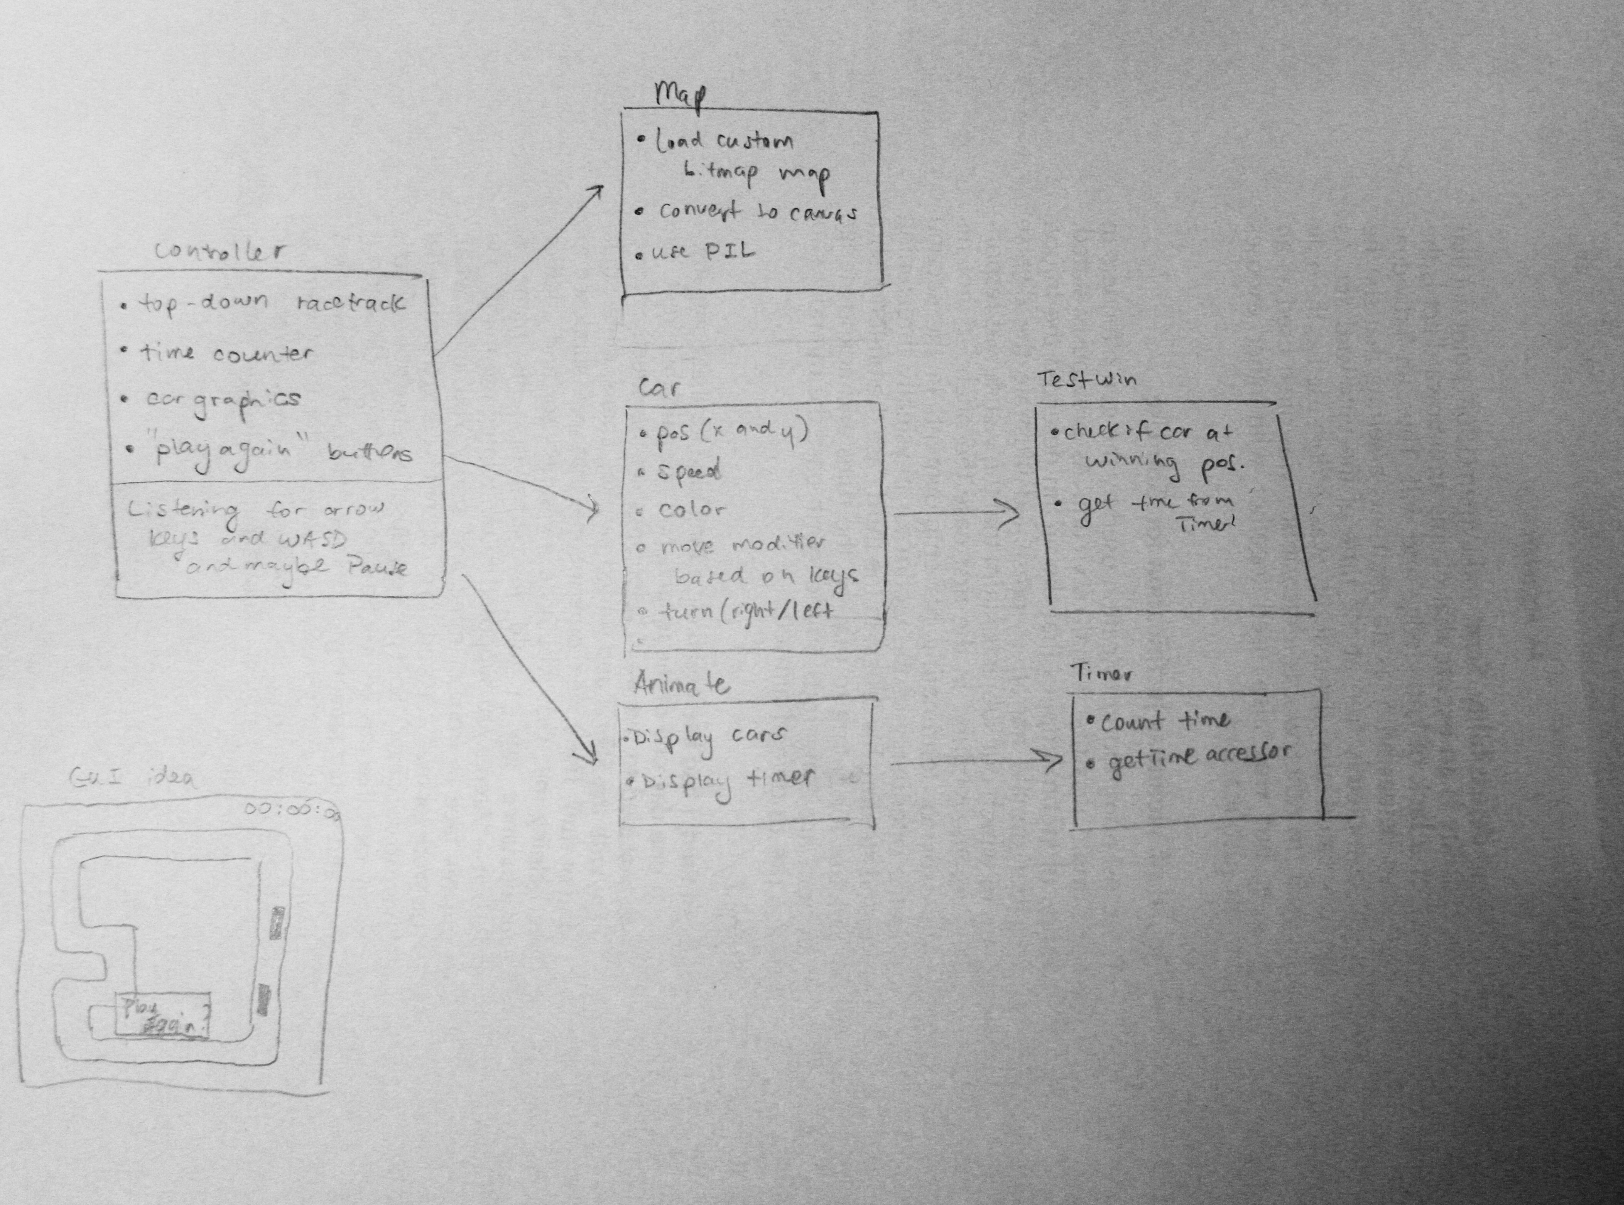 Controller
• top-down racetrack
• time counter
• car graphics
• "play again" buttons
Listening for arrow
keys and WASD
and maybe Pause
Map
• Load custom
bitmap map
• convert to canvas
• use PIL
Car
• pos (x and y)
• speed
• color
• move modifier
based on keys
• turn (right/left
•
Animate
• Display cars
• Display timer
Testwin
• check if car at
winning pos.
• get time from
Timer
Timer
• count time
• getTime accessor
GUI idea
00:00:00
Play
Again?